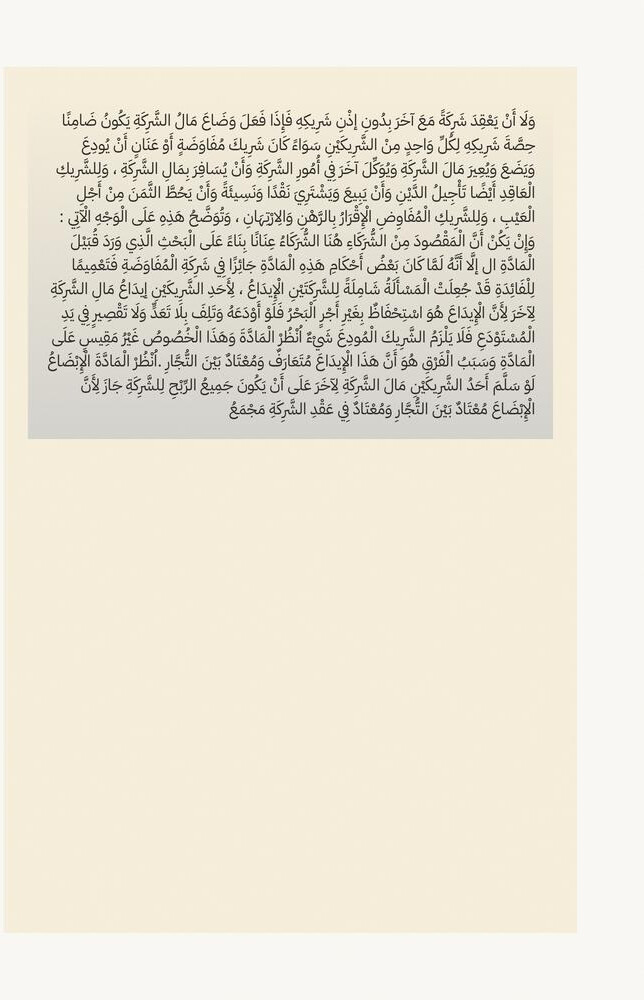 وَلَا أَنْ يَعْقِدَ شَرِكَةً مَعَ آخَرَ بِدُونِ إذْنِ شَرِيكِهِ فَإِذَا فَعَلَ وَضَاعَ مَالُ الشَّرِكَةِ يَكُونُ ضَامِنًا
حِصَّةَ شَرِيكِهِ لِكُلِّ وَاحِدٍ مِنْ الشَّرِيكَيْنِ سَوَاءً كَانَ شَرِيكَ مُفَاوَضَةٍ أَوْ عَنَانٍ أَنْ يُودِعَ
وَيَضَعَ وَيُعِيرَ مَالَ الشَّرِكَةِ وَيُوَكِّلَ آخَرَ فِي أُمُورِ الشَّرِكَةِ وَأَنْ يُسَافِرَ بِمَالِ الشَّرِكَةِ ، وَلِلشَّرِيكِ
الْعَاقِدِ أَيْضًا تَأْجِيلُ الدَّيْنِ وَأَنْ يَبِيعَ وَيَشْتَرِيَ نَقْدًا وَنَسِيئَةً وَأَنْ يَحُطَّ الثَّمَنَ مِنْ أَجْلِ
الْعَيْبِ ، وَلِلشَّرِيكِ الْمُفَاوِضِ الْإِقْرَارُ بِالرَّهْنِ وَالِارْتِهَانِ ، وَتُوَضَّحُ هَذِهِ عَلَى الْوَجْهِ الْآتِي :
وَإِنْ يَكُنْ أَنَّ الْمَقْصُودَ مِنْ الشُّرَكَاءِ هُنَا الشُّرَكَاءُ عِنَانًا بِنَاءً عَلَى الْبَحْثِ الَّذِي وَرَدَ قُبَيْلَ
الْمَادَّةِ ال إلَّا أَنَّهُ لَمَّا كَانَ بَعْضُ أَحْكَامِ هَذِهِ الْمَادَّةِ جَائِزًا فِي شَرِكَةِ الْمُفَاوَضَةِ فَتَعْمِيمًا
لِلْفَائِدَةِ قَدْ جُعِلَتْ الْمَسْأَلَةُ شَامِلَةً لِلشَّرِكَتَيْنِ الْإِيدَاعُ ، لِأَحَدِ الشَّرِيكَيْنِ إيدَاعُ مَالِ الشَّرِكَةِ
لِآخَرَ لِأَنَّ الْإِيدَاعَ هُوَ اسْتِحْفَاظٌ بِغَيْرِ أَجْرٍ الْبَحْرُ فَلَوْ أَوْدَعَهُ وَتَلِفَ بِلَا تَعَدٍّ وَلَا تَقْصِيرٍ فِي يَدِ
الْمُسْتَوْدَعِ فَلَا يَلْزَمُ الشَّرِيكَ الْمُودِعَ شَيْءٌ اُنْظُرْ الْمَادَّةَ وَهَذَا الْخُصُوصُ غَيْرُ مَقِيسٍ عَلَى
الْمَادَّةِ وَسَبَبُ الْفَرْقِ هُوَ أَنَّ هَذَا الْإِيدَاعَ مُتَعَارَفٌ وَمُعْتَادٌ بَيْنَ التُّجَّارِ .اُنْظُرْ الْمَادَّةَ الْإِبْضَاعُ
لَوْ سَلَّمَ أَحَدُ الشَّرِيكَيْنِ مَالَ الشَّرِكَةِ لِآخَرَ عَلَى أَنْ يَكُونَ جَمِيعُ الرِّبْحِ لِلشَّرِكَةِ جَازَ لِأَنَّ
الْإِبْضَاعَ مُعْتَادٌ بَيْنَ التُّجَّارِ وَمُعْتَادٌ فِي عَقْدِ الشَّرِكَةِ مَجْمَعُ